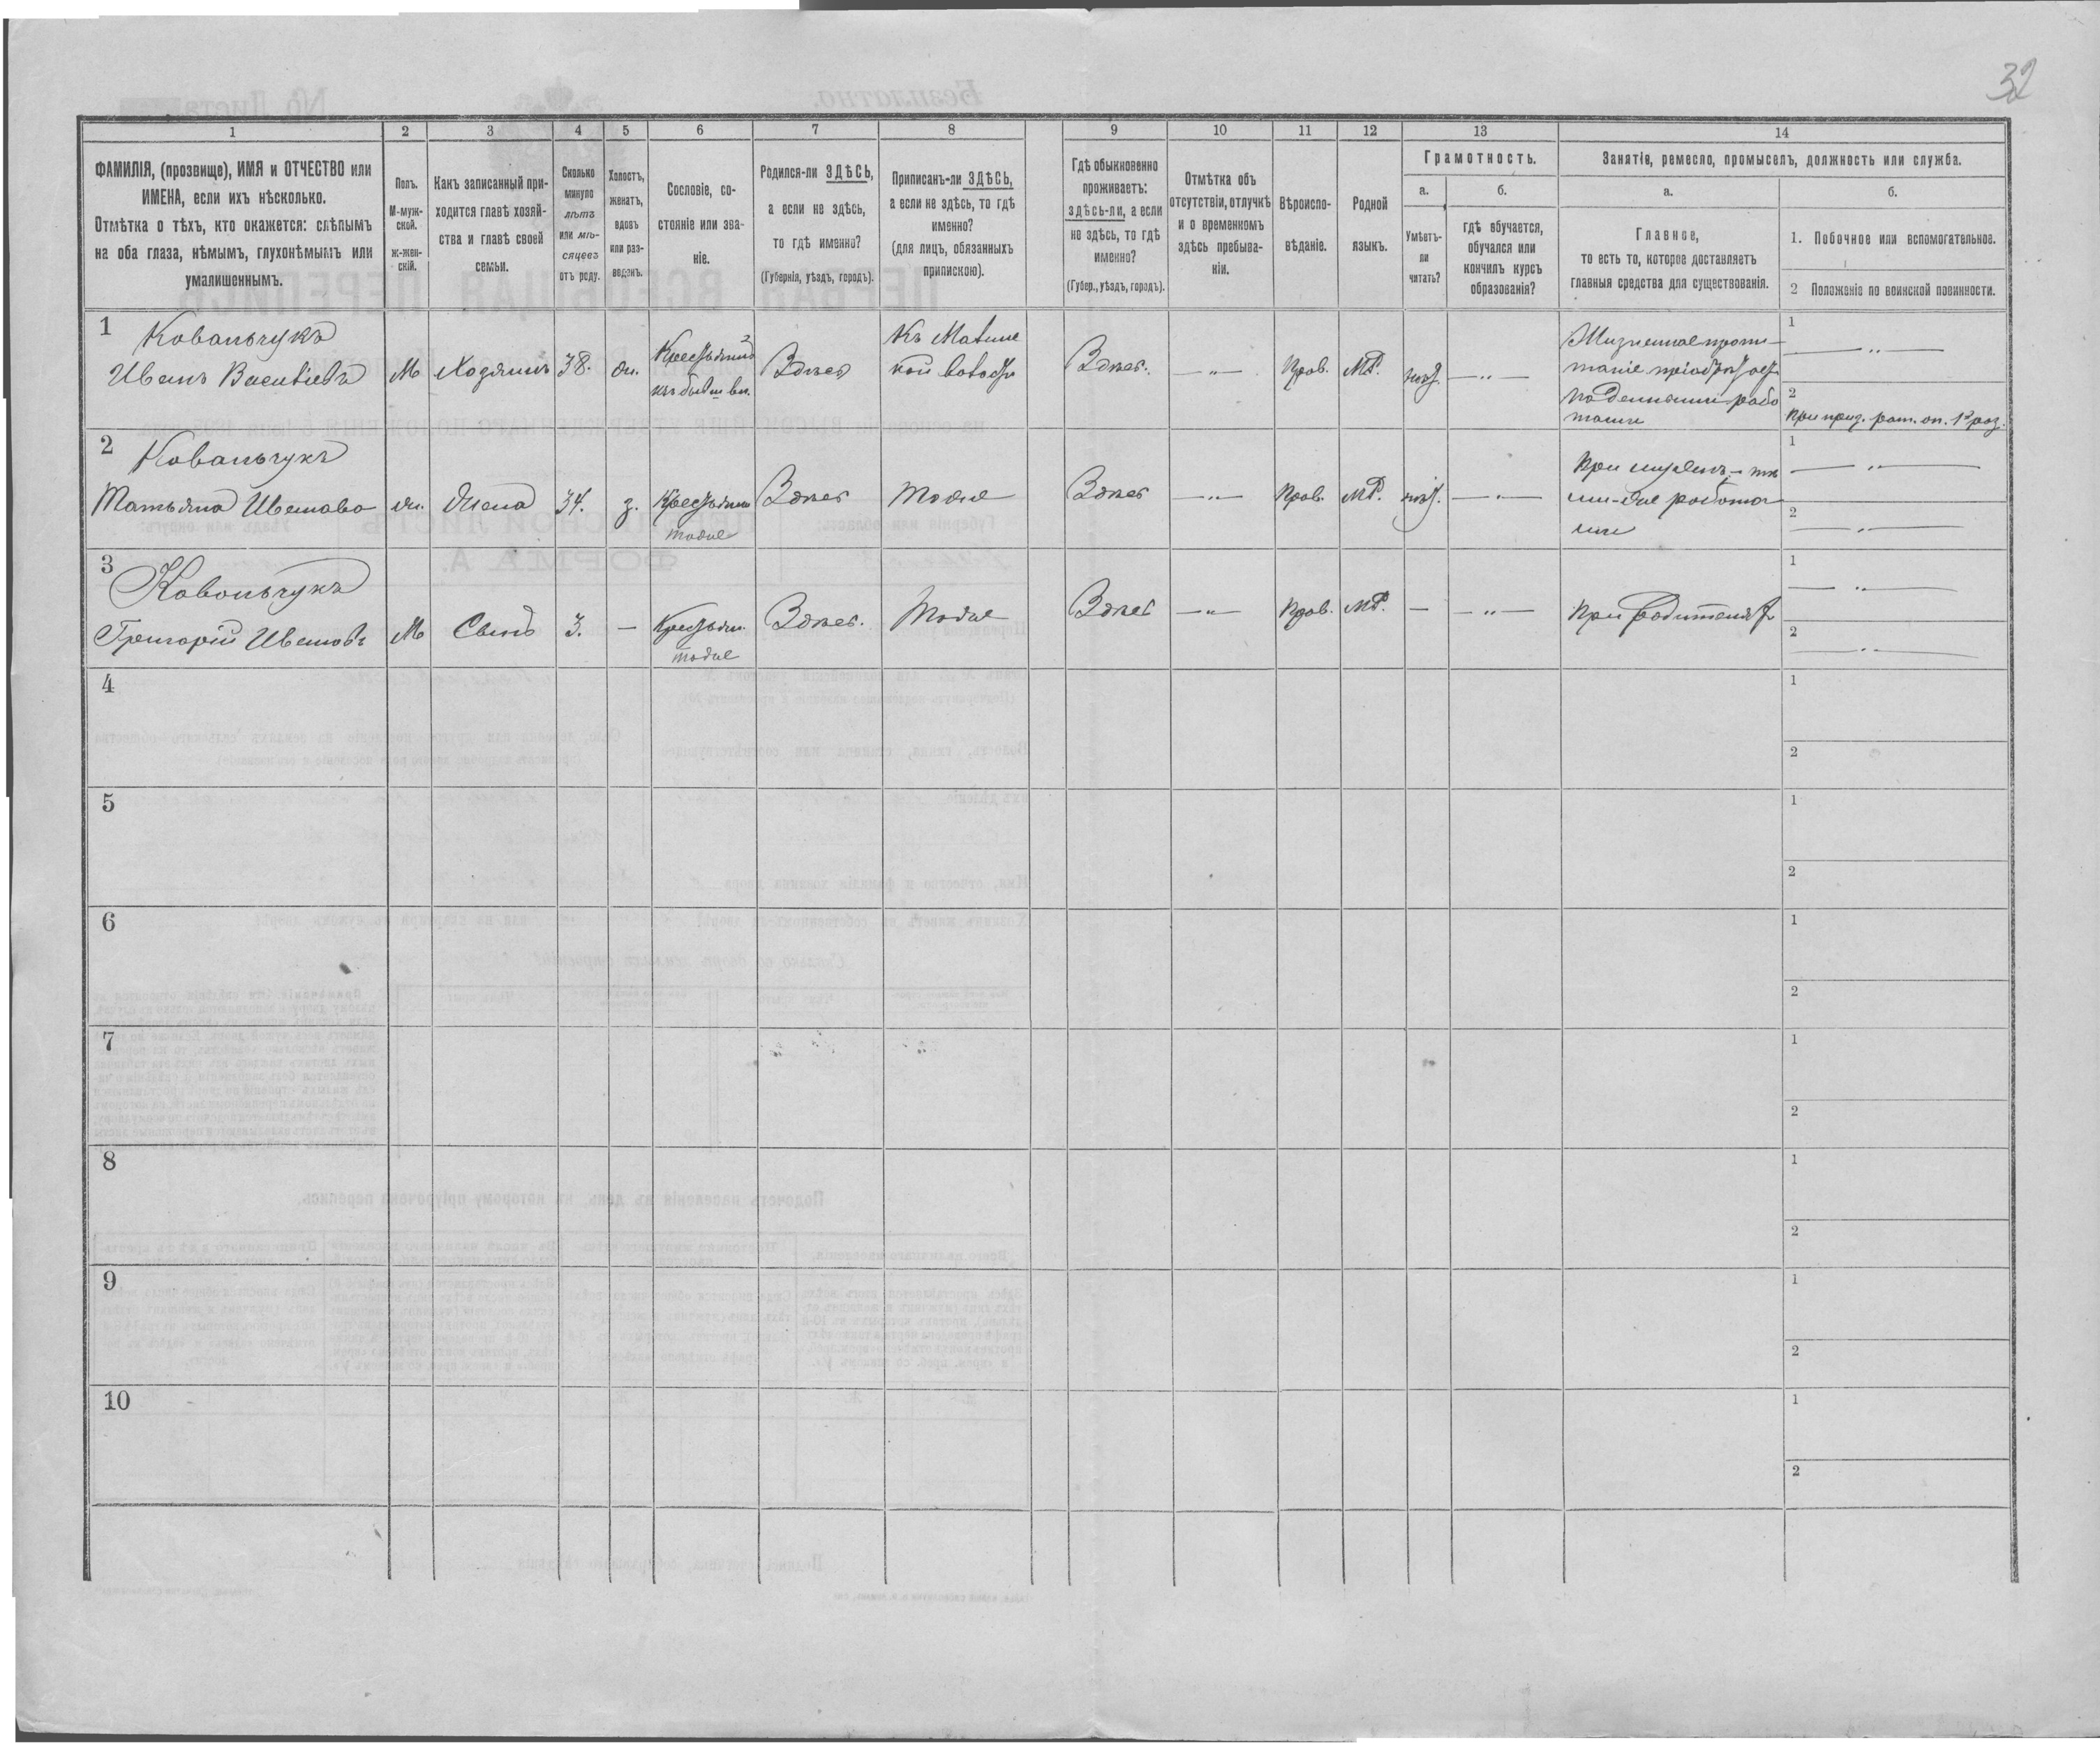 32
1 2 3 4 5 6 7 8 9 10 11 12 13 14
ФАМИЛІЯ, (прозвище), ИМЯ и ОТЧЕСТВО или
ИМЕНА, если ихъ нѣсколько.
Отмѣтка о тѣхъ, кто окажется: слѣпымъ
на оба глаза, нѣмымъ, глухонѣмымъ или
умалишеннымъ.
Полъ.
М-муж-
ской.
ж-жен-
скій.
Какъ записанный при-
ходится главѣ хозяй-
ства и главѣ своей
семьи.
Сколько
минуло
лѣтъ
или мѣ-
сяцевъ
отъ роду.
Холостъ,
женатъ,
вдовъ
или раз-
веденъ.
Сословіе, со-
стояніе или зва-
ніе.
Родился-ли ЗДѢСЬ,
а если не здѣсь,
то гдѣ именно?
(Губернія, уѣздъ, городъ).
Приписанъ-ли ЗДѢСЬ,
а если не здѣсь, то гдѣ
именно?
(для лицъ, обязанныхъ
припискою).
Гдѣ обыкновенно
проживаетъ:
здѣсь-ли, а если
не здѣсь, то гдѣ
именно?
(Губер., уѣздъ, городъ).
Отмѣтка объ
отсутствіи, отлучкѣ
и о временномъ
здѣсь пребыва-
ніи.
Вѣроиспо-
вѣданіе.
Родной
языкъ.
Грамотность.
а.
Умѣетъ-
ли
читать?
б.
гдѣ обучается,
обучался или
кончилъ курсъ
образованія?
Занятіе, ремесло, промыселъ, должность или служба.
а.
Главное,
то есть то, которое доставляетъ
главныя средства для существованія.
б.
1. Побочное или вспомогательное.
2 Положеніе по воинской повинности.
1 Ковальчукъ
Иванъ Васильевъ
М
Хозяинъ
38.
ж.
Крестьянинъ
изъ бывш вл.
Здѣсь
Здѣсь.
— „ —
Прав.
МР.
нѣт.
— „ —
Жизненное пропи-
таніе пріобрѣтает
поденными рабо
тами
1
— „ —
2
2 Ковальчукъ
Татьяна Иванова
ж.
Жена
34.
з.
Крестьянка
тоже
Здѣсь
Тоже
Здѣсь
— „ —
Прав.
МР.
нѣт.
— „ —
1
— „ —
2
— „ —
3 Ковальчукъ
Григорій Ивановъ
М
Сынъ
3.
—
Крестьян.
тоже
Здѣсь.
Тоже
Здѣсь
— „ —
Прав.
МР.
—
— „ —
При родителях
1
— „ —
2
— „ —
4
1
2
5
1
2
6
1
2
7
1
2
8
1
2
9
1
2
10
1
2